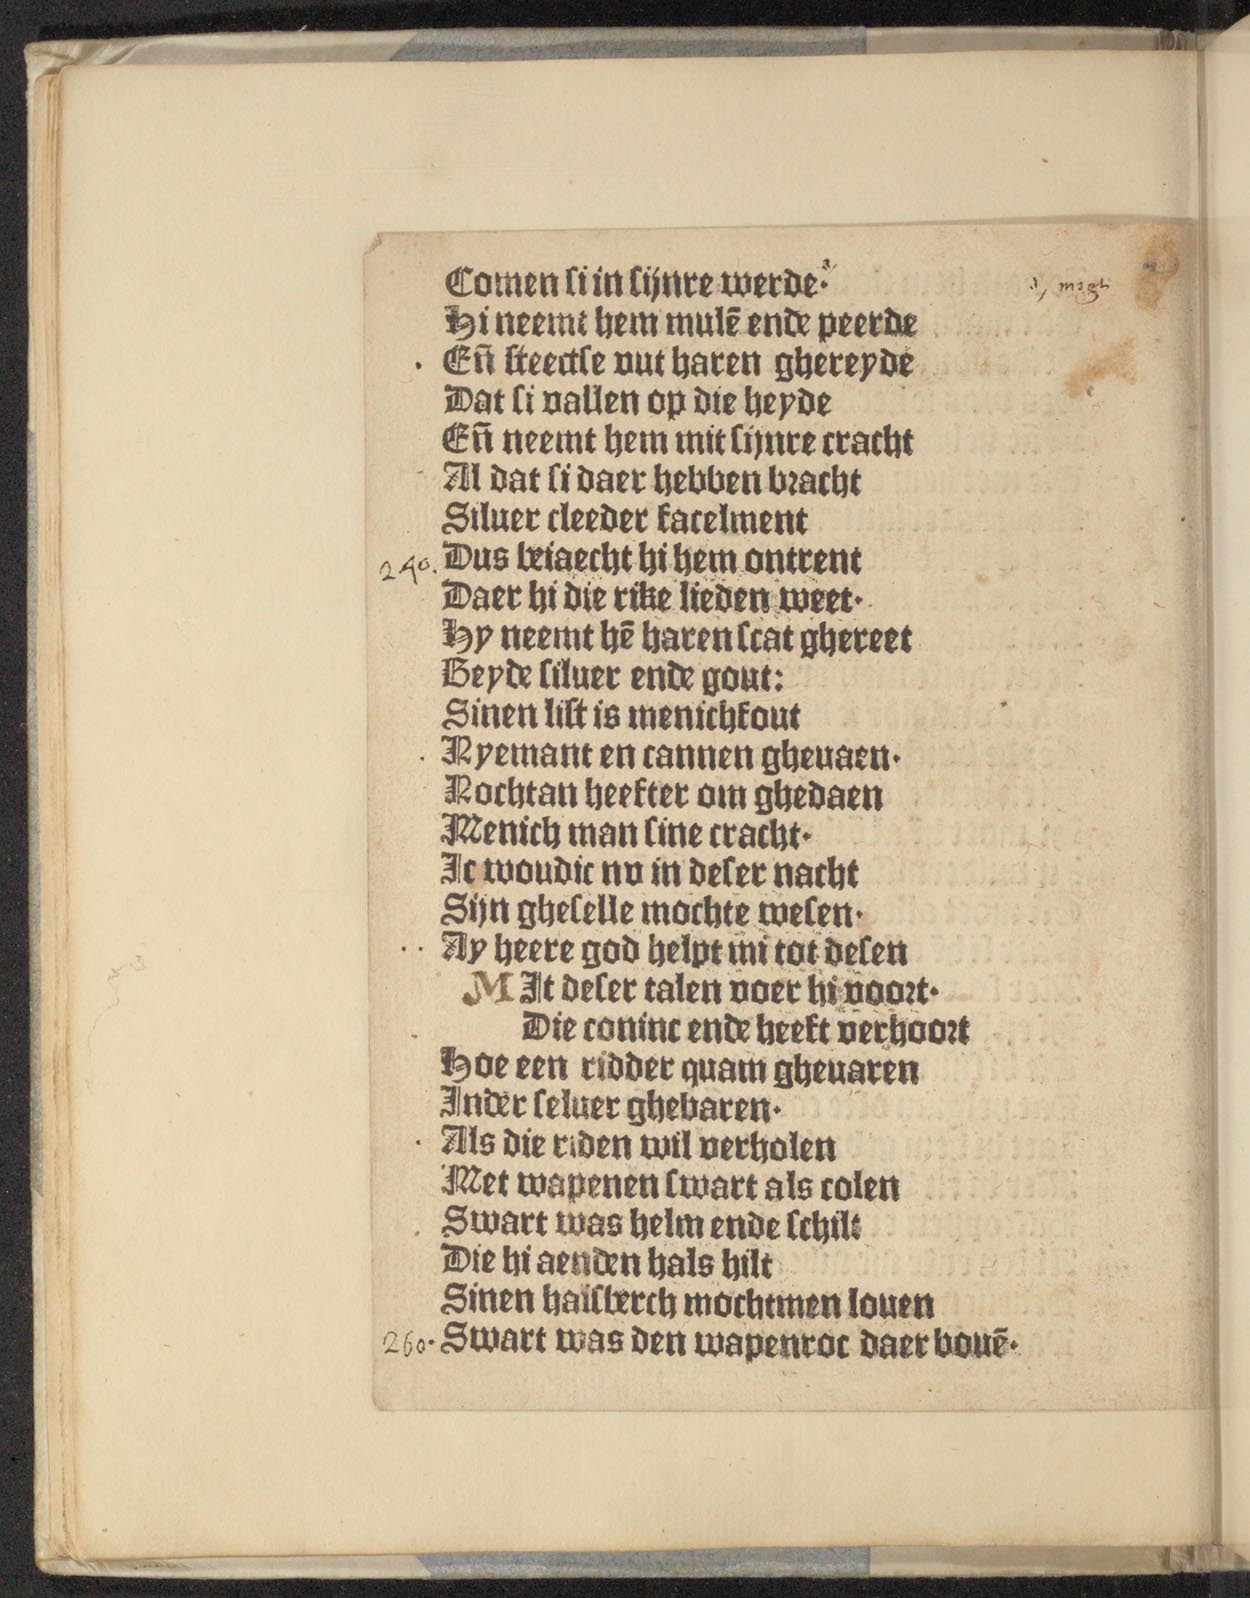 Comen si in sijnre werde·
Hi neemt hem mulē ende peerde
Eñ steectse vut haren ghereyde
Dat si vallen op die heyde
Eñ neemt hem mit sijnre cracht
Al dat si daer hebben bracht
Siluer cleeder facelment
240. Dus beiaecht hi hem ontrent
Daer hi die rike lieden weet·
Hy neemt hē haren scat ghereet
Beyde siluer ende gout:
Sinen list is menichfout
Nyemant en cannen gheuaen·
Nochtan heefter om ghedaen
Menich man sine cracht·
Ic woudic nv in deser nacht
Sijn gheselle mochte wesen·
Ay heere god helpt mi tot desen
M It deser talen voer hi voort·
Die coninc ende heeft verhoort
Hoe een ridder quam gheuaren
Inder seluer ghebaren·
Als die riden wil verholen
Met wapenen swart als colen
Swart was helm ende schilt
Die hi aenden hals hilt
Sinen halsberch mochtmen louen
260· Swart was den wapenroc daer bouē·